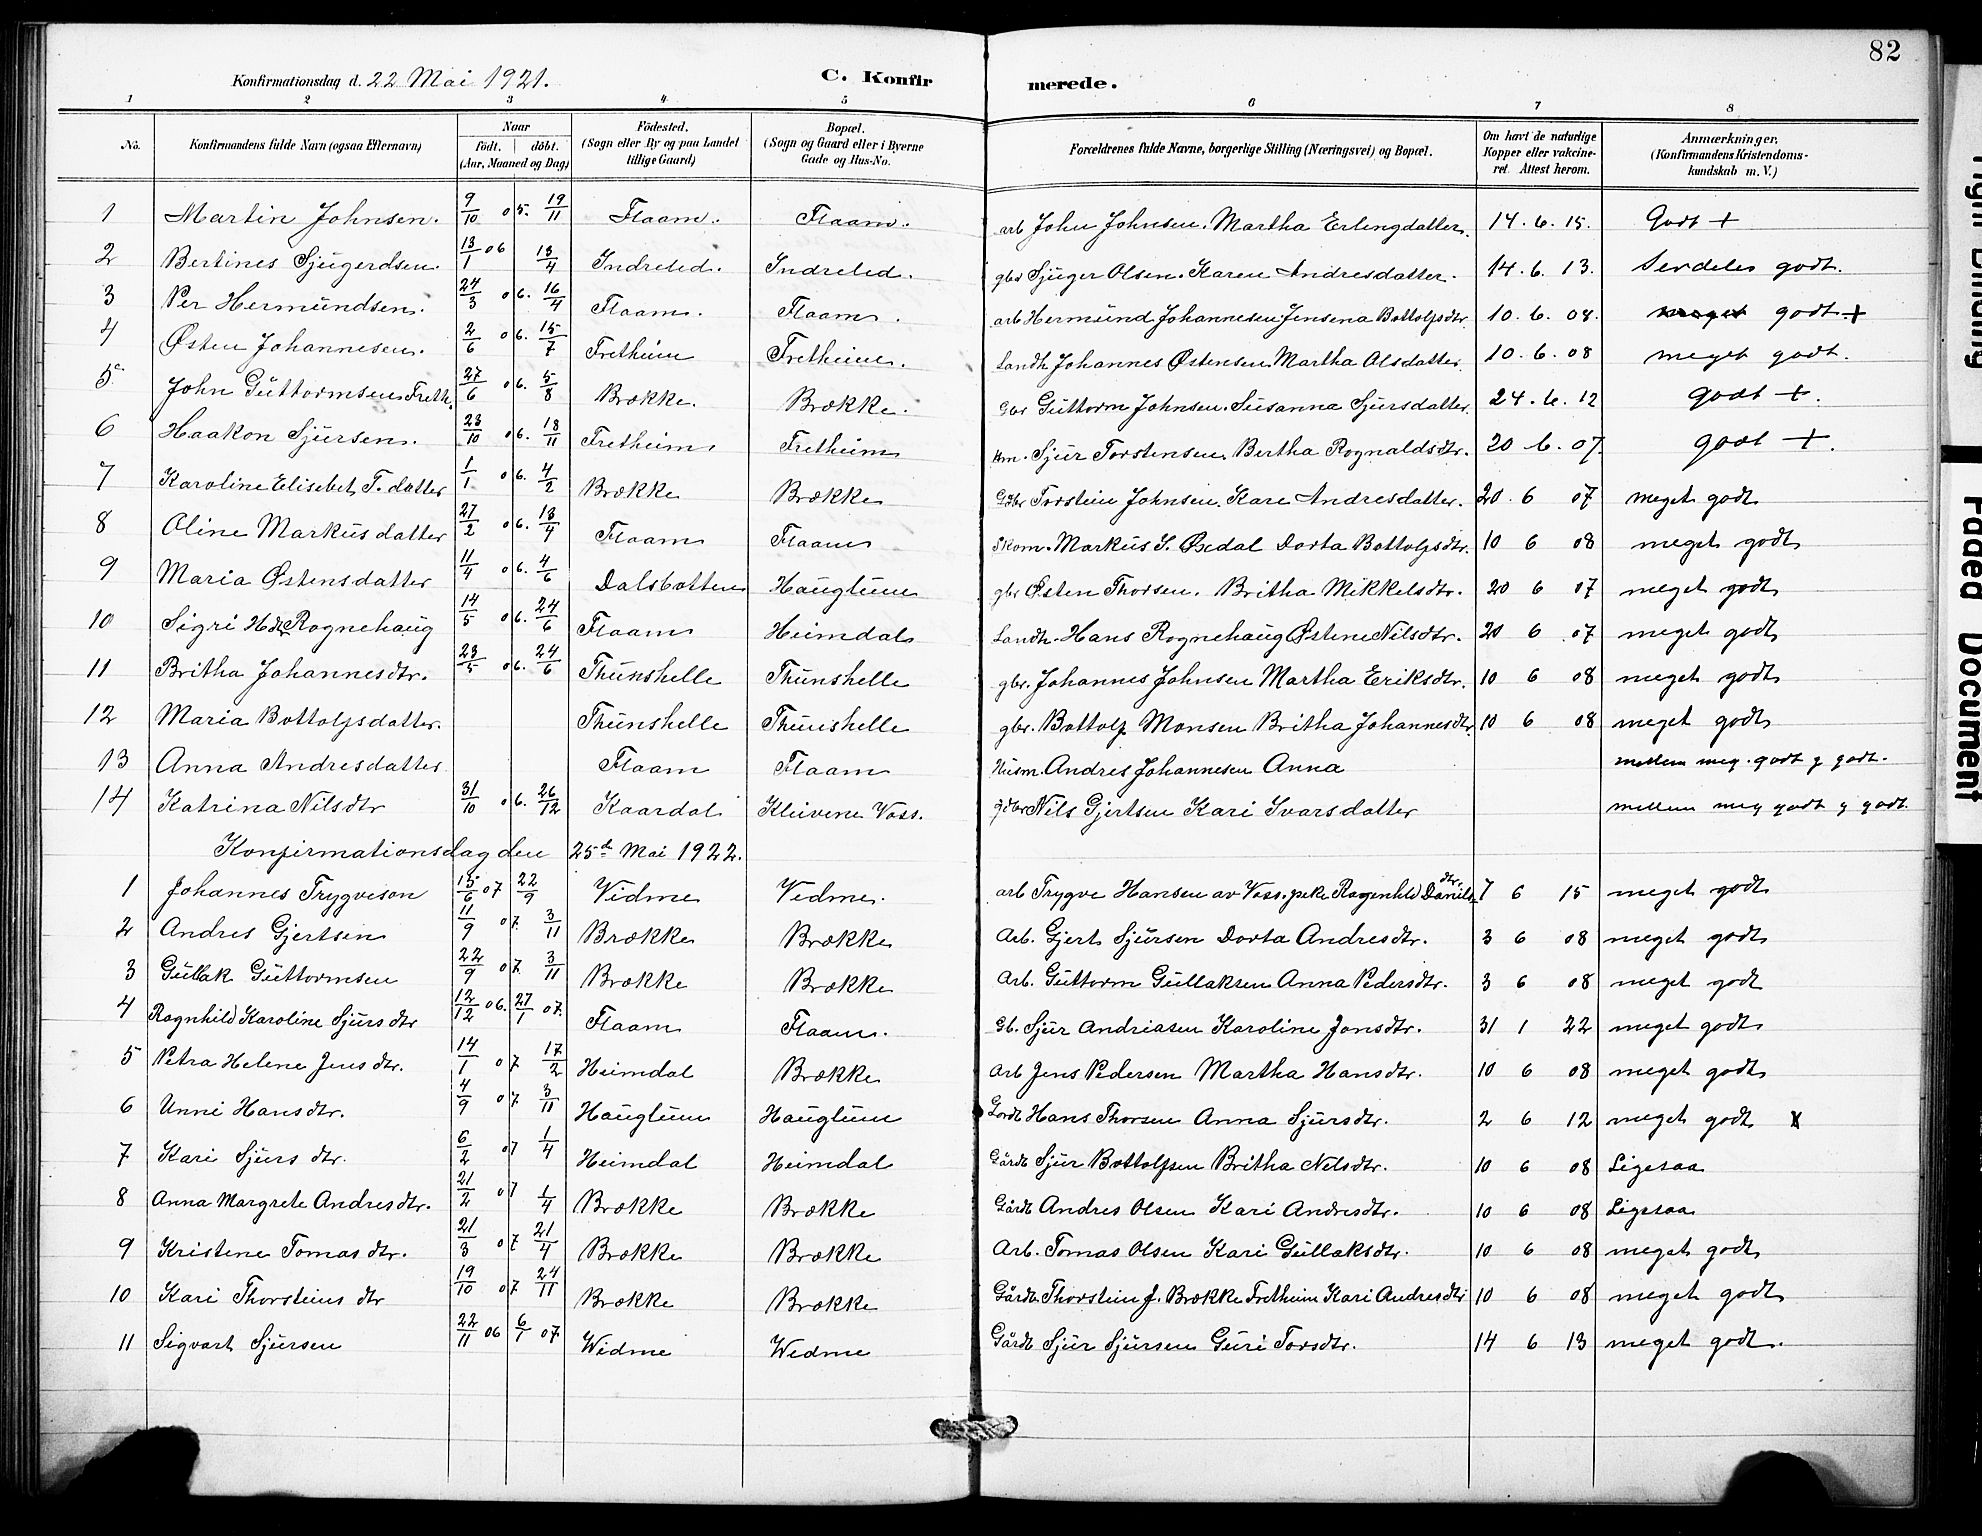 82
Konfirmationsdag d. 22 Mai 1921. C. Konfir merede.
1 2 3 4 5 6 7 8
No. Konfirmandens fulde Navn (ogsaa Efternavn) Naar født. døbt. (Aar, Maaned og Dag) Fødested. (Sogn eller By og paa Landet tillige Gaard) Bopæl. (Sogn og Gaard eller i Byerne Gade og Hus-No. Forældrenes fulde Navne, borgerlige Stilling (Næringsvei) og Bopæl. Om havt de naturlige Kopper eller vakcineret. Attest herom. Anmærkninger, (Konfirmandens Kristendomskundskab m. V.)
1 Martin Johnsen. 9/10 05. 19/11 Flaam. Flaam. arb John Johnsen. Martha Erlingdatter. 14. 6. 15. Godt +
2 Bertines Sjugerdsen. 13/1 06 18/4 Indrelid. Indrelid. gbr Sjuger Olsen. Karen Andresdatter. 14. 6. 13. Serdeles godt.
3 Per Hermundsen. 24/3 06. 16/4 Flaam. Flaam. arb Hermund Johannesen Jensena Bottolfsdtr. 10. 6. 08. meget godt +
4 Østen Johannesen. 2/6 06. 15/7 Fretheim Fretheim. Landh Johannes Østensen Martha Olsdatter. 10. 6. 08 meget godt.
5. John Guttormsen Freth. 27/6 06. 5/8 Brække. Brække. Gbr Guttorm Johnsen. Susanna Sjursdatter. 24. 6. 12 godt +.
6 Haakon Sjursen. 23/10 06. 18/11 Fretheim. Fretheim Hm. Sjur Torstensen. Bertha Rognaldsdtr. 20 6. 07. godt +.
7 Karoline Elisebet T. datter 1/1 06. 4/2 Brække Brække Gdbr Torstein Johnsen. Kari Andresdatter. 20. 6 07 meget godt
8 Oline Markusdatter 27/2 06. 13/4 Flaam Flaam Skom. Markus S. Øxdal Dorta Bottolfsdtr. 10 6 08 meget godt
9 Maria Østensdatter 11/4 06. 4/6 Dalsbotten Hauglum gbr Østen Thorsen. Britha Mikkelsdtr. 20 6 07 meget godt
10 Sigri Hdtr Rognehaug 14/5 06. 24/6 Flaam Heimdal Landh. Hans Rognehaug Østene Nilsdtr. 20 6 07 meget godt
11 Britha Johannesdtr. 23/5 06. 24/6 Thunshelle Thunshelle gbr. Johannes Johnsen Martha Eriksdtr. 10 6 08 meget godt
12 Maria Bottolfsdatter. Thunshelle Thunshelle gbr. Bottolf Monsen Britha Johannesdtr. 10 6 08 meget godt
13 Anna Andresdatter Flaam Flaam Husm. Andres Johannesen Anna mellem meg. godt g godt.
14 Katrina Nilsdtr 31/10 06. 26/12 Kaardal Kleivene Voss. gdbr Nils Gjertsen Kari Ivarsdatter mellem meg godt g godt.
Konfirmationsdag den 25de Mai 1922.
1 Johannes Trygveson 15/6 07 22/9 Vidme Vidme. arb Trygve Hansen av Voss. pike Ragnhild Danielsdtr. 7 6 15 meget godt
2 Andres Gjertsen 11/9 07. 3/11 Brække Brække Arb. Gjert Sjursen Dorta Andresdtr. 3 6 08 meget godt
3 Gullak Guttormsen 22/9 07. 3/11 Brække Brække Arb. Guttorm Gullaksen Anna Pedersdtr. 3 6 08 meget godt
4 Ragnhild Karoline Sjursdtr 12/12 06. 27/1 07. Flaam Flaam. Gb. Sjur Andriasen Karoline Jonsdtr. 31 1 22 meget godt
5 Petra Helene Jensdtr. 14/1 07 17/2 Heimdal Brække Arb Jens Pedersen Martha Hansdtr. 10 6 08 meget godt
6 Unni Hansdtr. 4/9 07 3/11 Hauglum Hauglum Gårdb Hans Thorsen Anna Sjursdtr. 2 6 12 meget godt X
7 Kari Sjursdtr. 6/2 07 1/4 Heimdal Heimdal Gårdb Sjur Bottolfsen Britha Nilsdtr. 10 6 08 Ligesaa
8 Anna Margrete Andresdtr. 21/2 07 1/4 Brække Brække Gårdb Andres Olsen Kari Andresdtr. 10 6 08 Ligesaa
9 Kristene Tomasdtr. 21/3 07 21/4 Brække Brække Arb. Tomas Olsen Kari Gullaksdtr. 10 6 08 meget godt
10 Kari Thorsteinsdtr 19/10 07 24/11 Brække Brække Gårdb. Thorstein J. Brække Fretheim Kari Andresdtr 10 6 08 meget godt
11 Sigvart Sjursen 22/11 06 6/1 07. Widme Widme Gårdb Sjur Sjursen Guri Torsdtr. 14 6 13 meget godt.
Tight Binding
Faded Document